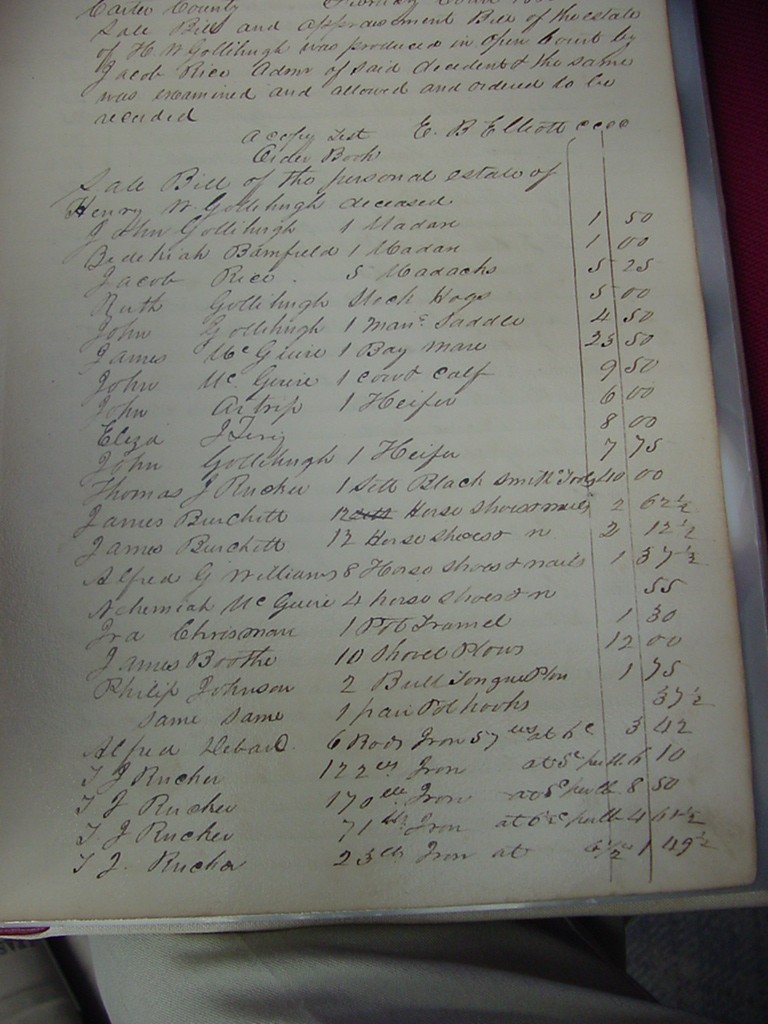 Carter County
Sale Bill and appraisment Bill of the estate
of H. W Gollihugh was produced in Open Court by
Jacob Rice Admr of said decedent & the same
was examined and allowed and ordered to be
recorded
a copy Test E. B Elliott cccc
Order Book
Sale Bill of the personal estate of
Henry W Gollihugh deceased
John Gollihugh 1 1 50
Bedekiah Bamfield 1 1 00
Jacob Rice 5 5 25
Ruth Gollihugh Stock Hogs 5 00
John Gollihugh 1 Mans Saddle 4 50
James McGuire 1 Bay Mare 23 50
John McGuire 1 cow & calf 9 50
John Artrip 1 Heifer 6 00
Eliza 8 00
John Gollihugh 1 Heifer 7 75
Thomas J Rucker 1 Sett Black Smith Tools 40 00
James Burchett 12 Horse shoes & nails 2 62½
James Burchett 12 Horse shoes & n 2 12½
Alfred G Williams 8 Horse shoes & nails 1 37½
Nehemiah McGuire 4 horse shoes & n 55
Ira Chrisman 1 Pot Tramel 1 30
James Boothe 10 Shovel Plows 12 00
Philip Johnson 2 Bull Tongue Plow 1 75
Same Same 1 pair Pot hooks 37½
Alfred 6 Rods Iron 57 lbs at 6c 3 42
T J Rucker 122 lbs Iron at 5c per lb 6 10
T J Rucker 170 lbs Iron at 5c per lb 8 50
T J Rucker 71 lbs Iron at 6½c per lb 4 61½
T J. Rucker 23 lbs Iron at 6½ 1 49½